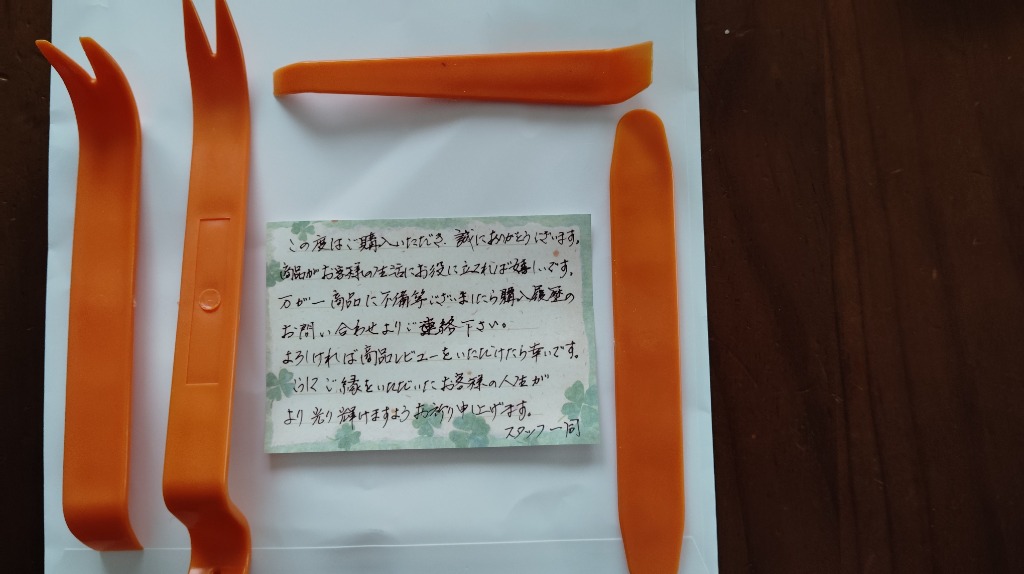 この度はご購入いただき、誠にありがとうございます。
商品がお客様の生活にお役に立てれば嬉しいです。
万が一商品に不備等ございましたら購入履歴の
お問い合わせよりご連絡下さい。
よろしければ商品レビューをいただけたら幸いです。
ご縁をいただいたお客様の人生が
より光り輝けますようお祈り申上げます。
スタッフ一同